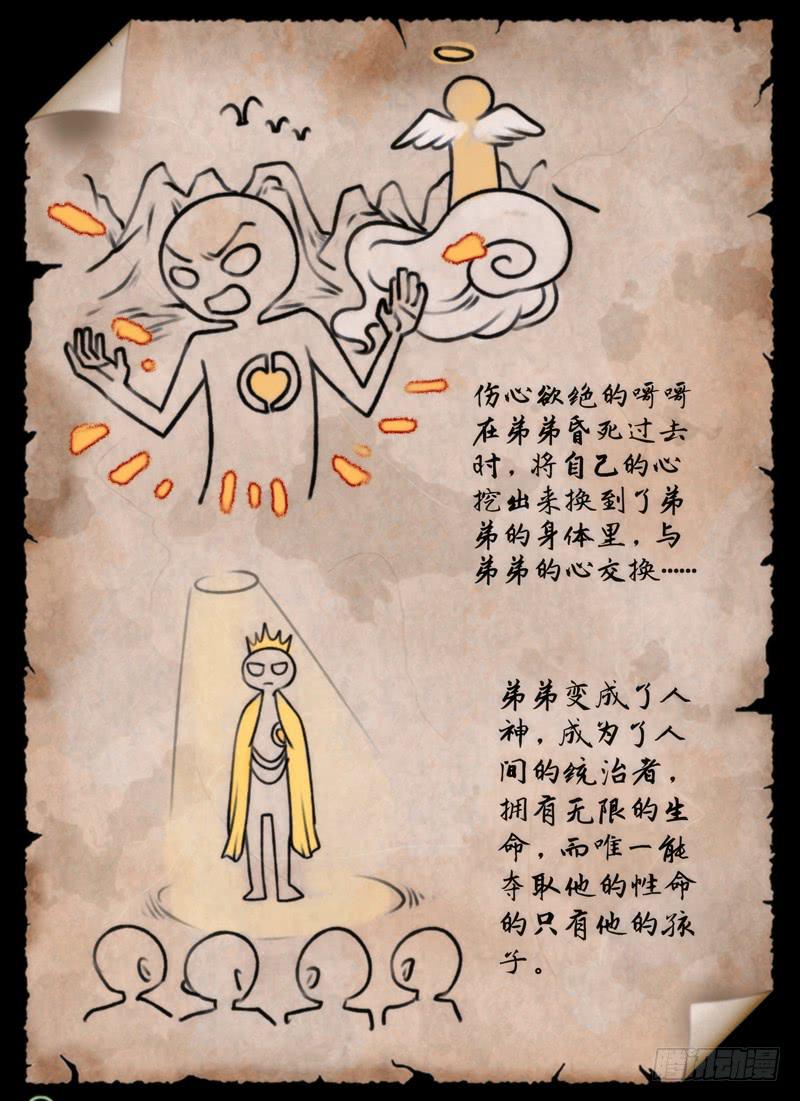 伤心欲绝的哥哥
在弟弟昏死过去
时，将自己的心
挖出来换到了弟
弟的身体里，与
弟弟的心交换……
弟弟变成了人
神，成为了人
间的统治者，
拥有无限的生
命，而唯一能
夺取他的性命
的只有他的孩
子。
腾讯动漫